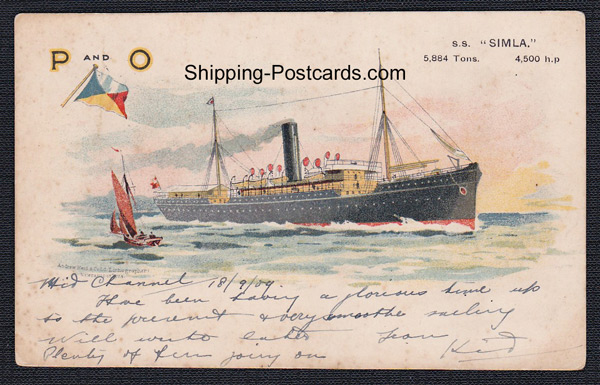 P AND O
S.S. "SIMLA."
5,884 Tons. 4,500 h.p
Shipping-Postcards.com
Mid Channel 18/9/09
Have been having a glorious time up
to the present & very smoothe sailing
Will write later from
Plenty of fun going on Kid